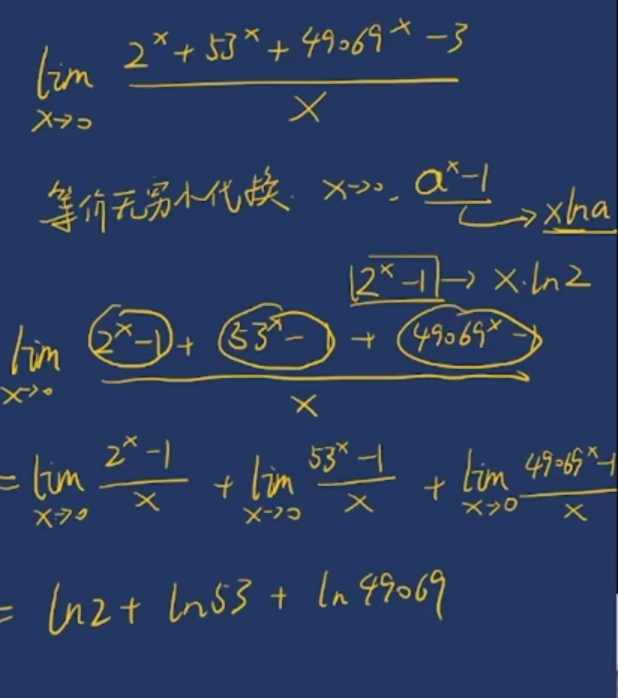 lim x→0 (2^x + 53^x + 49069^x - 3) / x
等价无穷小代换. x→0. a^x-1 → xlna
2^x-1 → x·ln2
lim x→0 ((2^x-1) + (53^x-1) + (49069^x-1)) / x
= lim x→0 (2^x-1)/x + lim x→0 (53^x-1)/x + lim x→0 (49069^x-1)/x
= ln2 + ln53 + ln49069